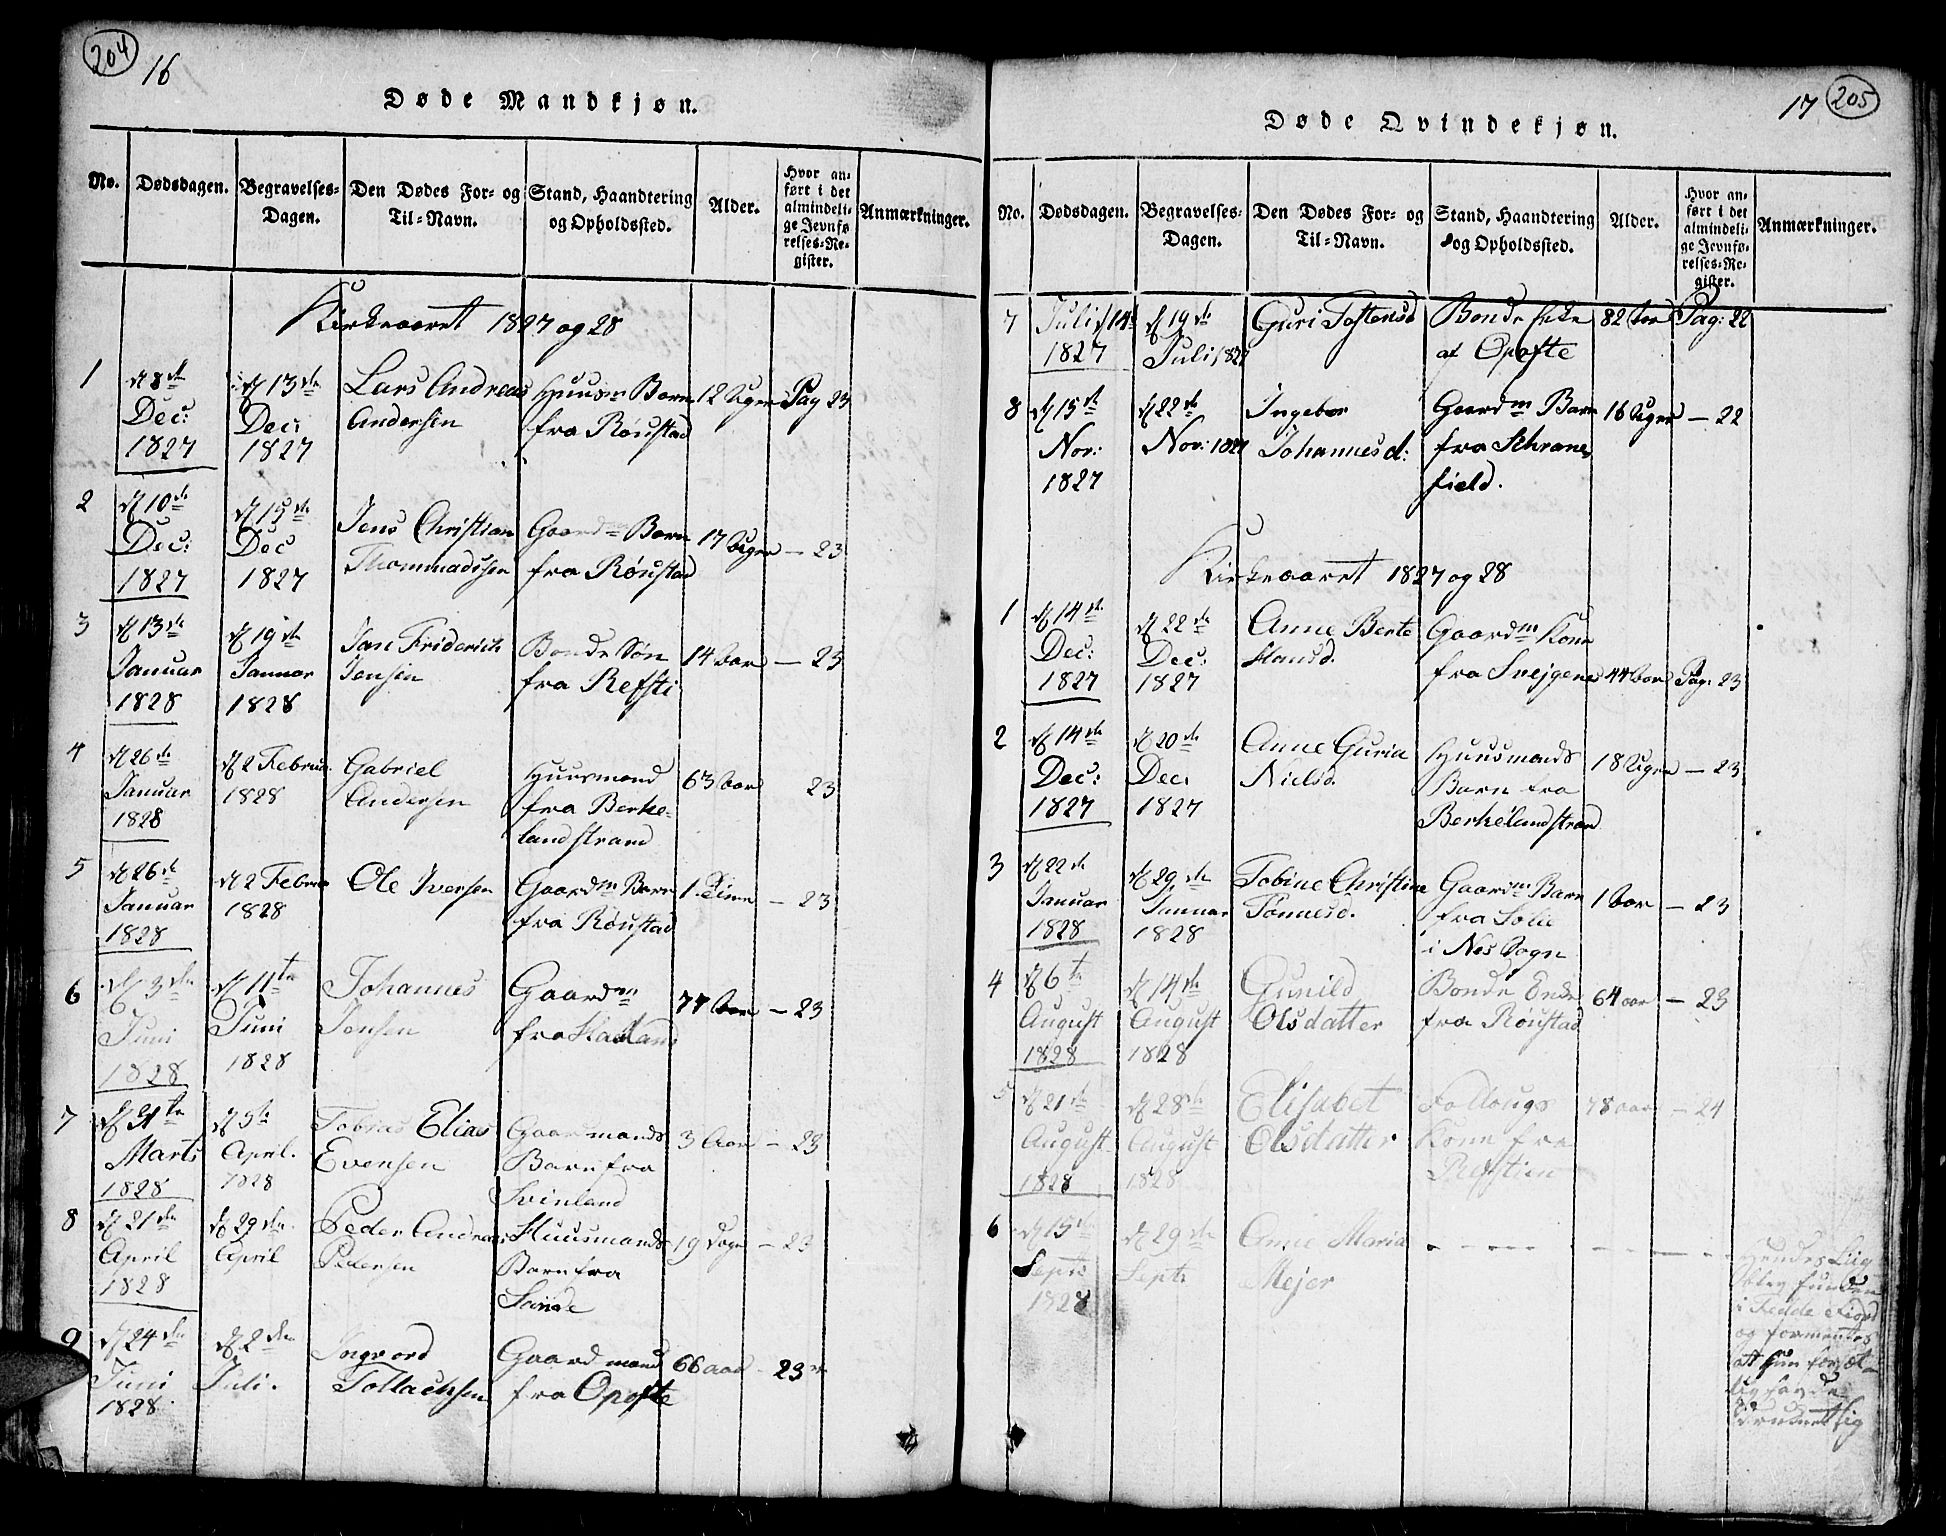 204
16
Døde Mandkjøn.
No. Dødsdagen. Begravelses-Dagen. Den Dødes For- og Til-Navn. Stand, Haandtering og Opholdssted. Alder. Hvor anført i det almindelige Jevnførelses-Register. Anmærkninger.
Kirkeaaret 1827 og 28
1 d 8de Dec: 1827 d 13de Dec: 1827 Lars Andreas Andersen Huusm Barn fra Røustad 12 Uger Pag 23
2 d 10de Dec: 1827 d 15de Dec 1827 Jens Christian Thommassen Gaardm Barn fra Røustad 17 Uger — 23
3 d 13de Januar 1828 d 19de Januar 1828 Friderich Jensen Bonde Søn fra Refsti 14 Aar — 23
4 d 26de Januar 1828 d 2 Februa. 1828 Gabriel Andersen Huusmand fra Berke-land strand 63 Aar 23
5 d 26de Januar 1828 d 2 Februa 1828 Ole Iversen Gaardm Barn fra Røustad 1 Time — 23
6 d 3de Juni 1828 d 11te Juni 1828 Johannes Jensen Gaardm fra 77 Aar — 23
7 d 31te Marts 1828 d 5te April. 1828 Tobias Elias Evensen Gaardmands Barn fra Svinland 3 Aar — 23
8 d 21de April 1828 d 29de April Peder Andreas Pedersen Huusmands Barn fra Sande 19 Dage — 23
9 d 24de Juni 1828 d 2den Juli. Ingvord Tollachsen Gaardmand fra Opofte 66 aar — 23
17
205
Døde Qvindekjøn.
No. Dødsdagen. Begravelses-Dagen. Den Dødes For- og Til-Navn. Stand, Haandtering og Opholdssted. Alder. Hvor anført i det almindelige Jevnførelses-Register. Anmærkninger.
7 Juli d 14de 1827 d 19de Juli 1827 Guri Tostensd Bonde Enke af Opofte 82 Aar Pag: 22
8 d 15de Nov: 1827 d 22de Nov: 1827 Ingebor Johannesd: Gaardm Barn fra Schranefield. 16 Uger — 22
Kirkeaaret 1827 og 28
1 d 14de Dec: 1827 d 22de Dec: 1827 Anne Berte Hansd. Gaardm Kone fra Svejgene 44 Aar Pag: 23
2 d 14de Dec: 1827 d 20de Dec. 1827 Anne Guria Nielsd. Huusmands Barn fra Berkelandstrand 18 Uger — 23
3 d 22de Januar 1828 d 29de Januar 1828 Tobine Christine Tønnesd. Gaardm Barn fra Solie i Nes Sogn 1 Aar — 23
4 d 6te August 1828 d 14de August 1828 Gunild Olsdatter Bonde Enke fra Røustad 64 aar — 23
5 d 21de August 1828 d 28de August 1828 Elisabet Olsdatter Follougs Kone fra Refstien 78 aar — 24
6 d 15de Septr 1828 d 29de Septr Anne Maria Mejer - - - - - — - — -
Hendes Liig
blev funden
i Fedde Fiord
og formentes
att hun forsæt-
lig havde
druknet sig